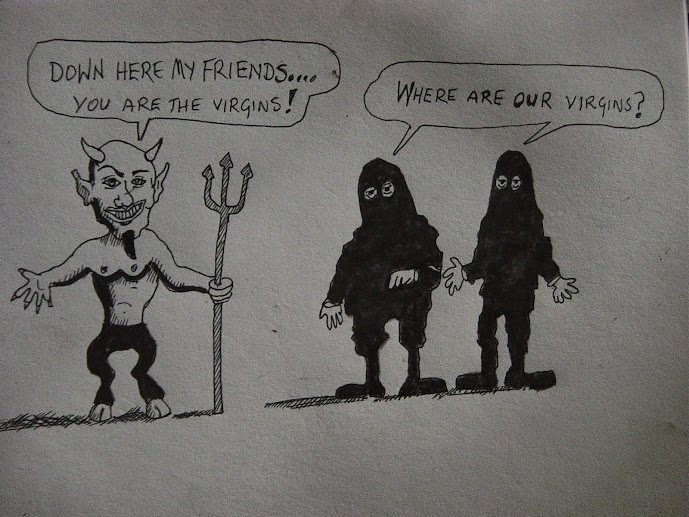 DOWN HERE MY FRIENDS....
YOU ARE THE VIRGINS!
WHERE ARE OUR VIRGINS?